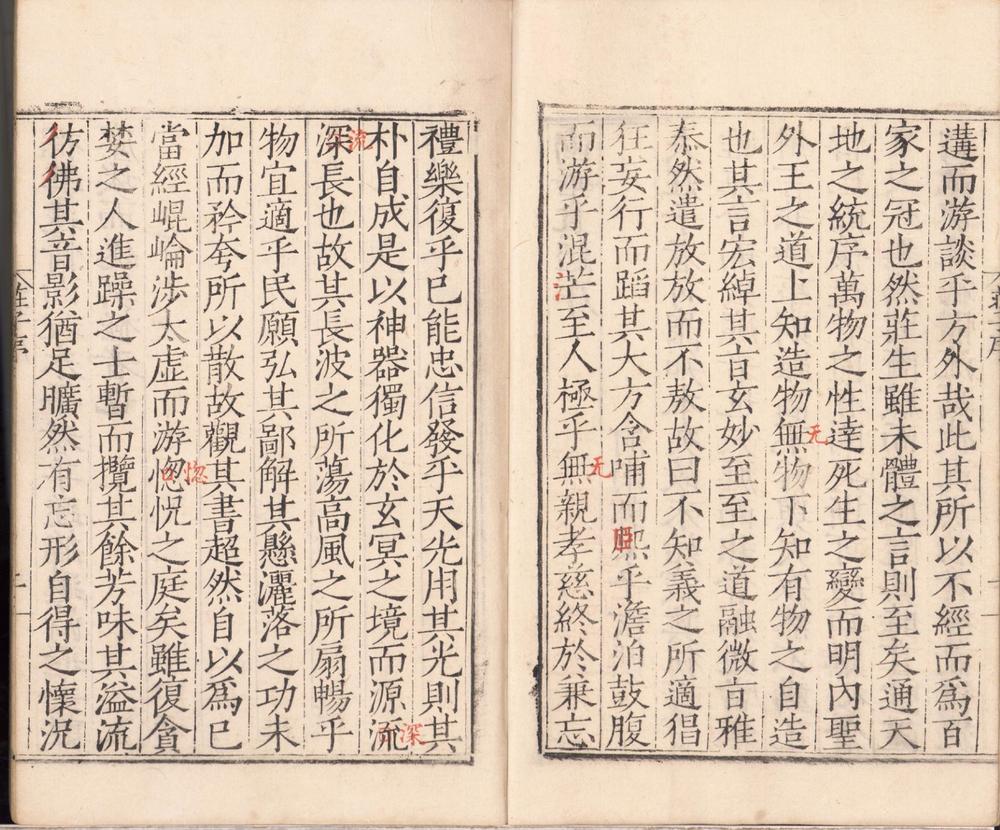 遘而游談乎方外哉此其所以不經而爲百
家之冠也然莊生雖未體之言則至矣通天
地之統序萬物之性達死生之變而明內聖
外王之道上知造物無物下知有物之自造
无
也其言宏綽其旨玄妙至至之道融微旨雅
泰然遣放放而不敖故曰不知義之所適倡
狂妄行而蹈其大方含哺而熙乎澹泊鼓腹
而游乎混芒至人極乎無親孝慈終於兼忘
无
禮樂復乎已能忠信發乎天光用其光則其
朴自成是以神器獨化於玄冥之境而源流
深
深長也故其長波之所蕩高風之所扇暢乎
流
物宜適乎民願弘其鄙解其懸灑落之功未
加而矜夸所以散故觀其書超然自以爲已
當經崐崘涉太虛而游惚怳之庭矣雖復貪
惚
婪之人進躁之士暫而攬其餘芳味其溢流
彷彿其音影猶足曠然有忘形自得之懷況